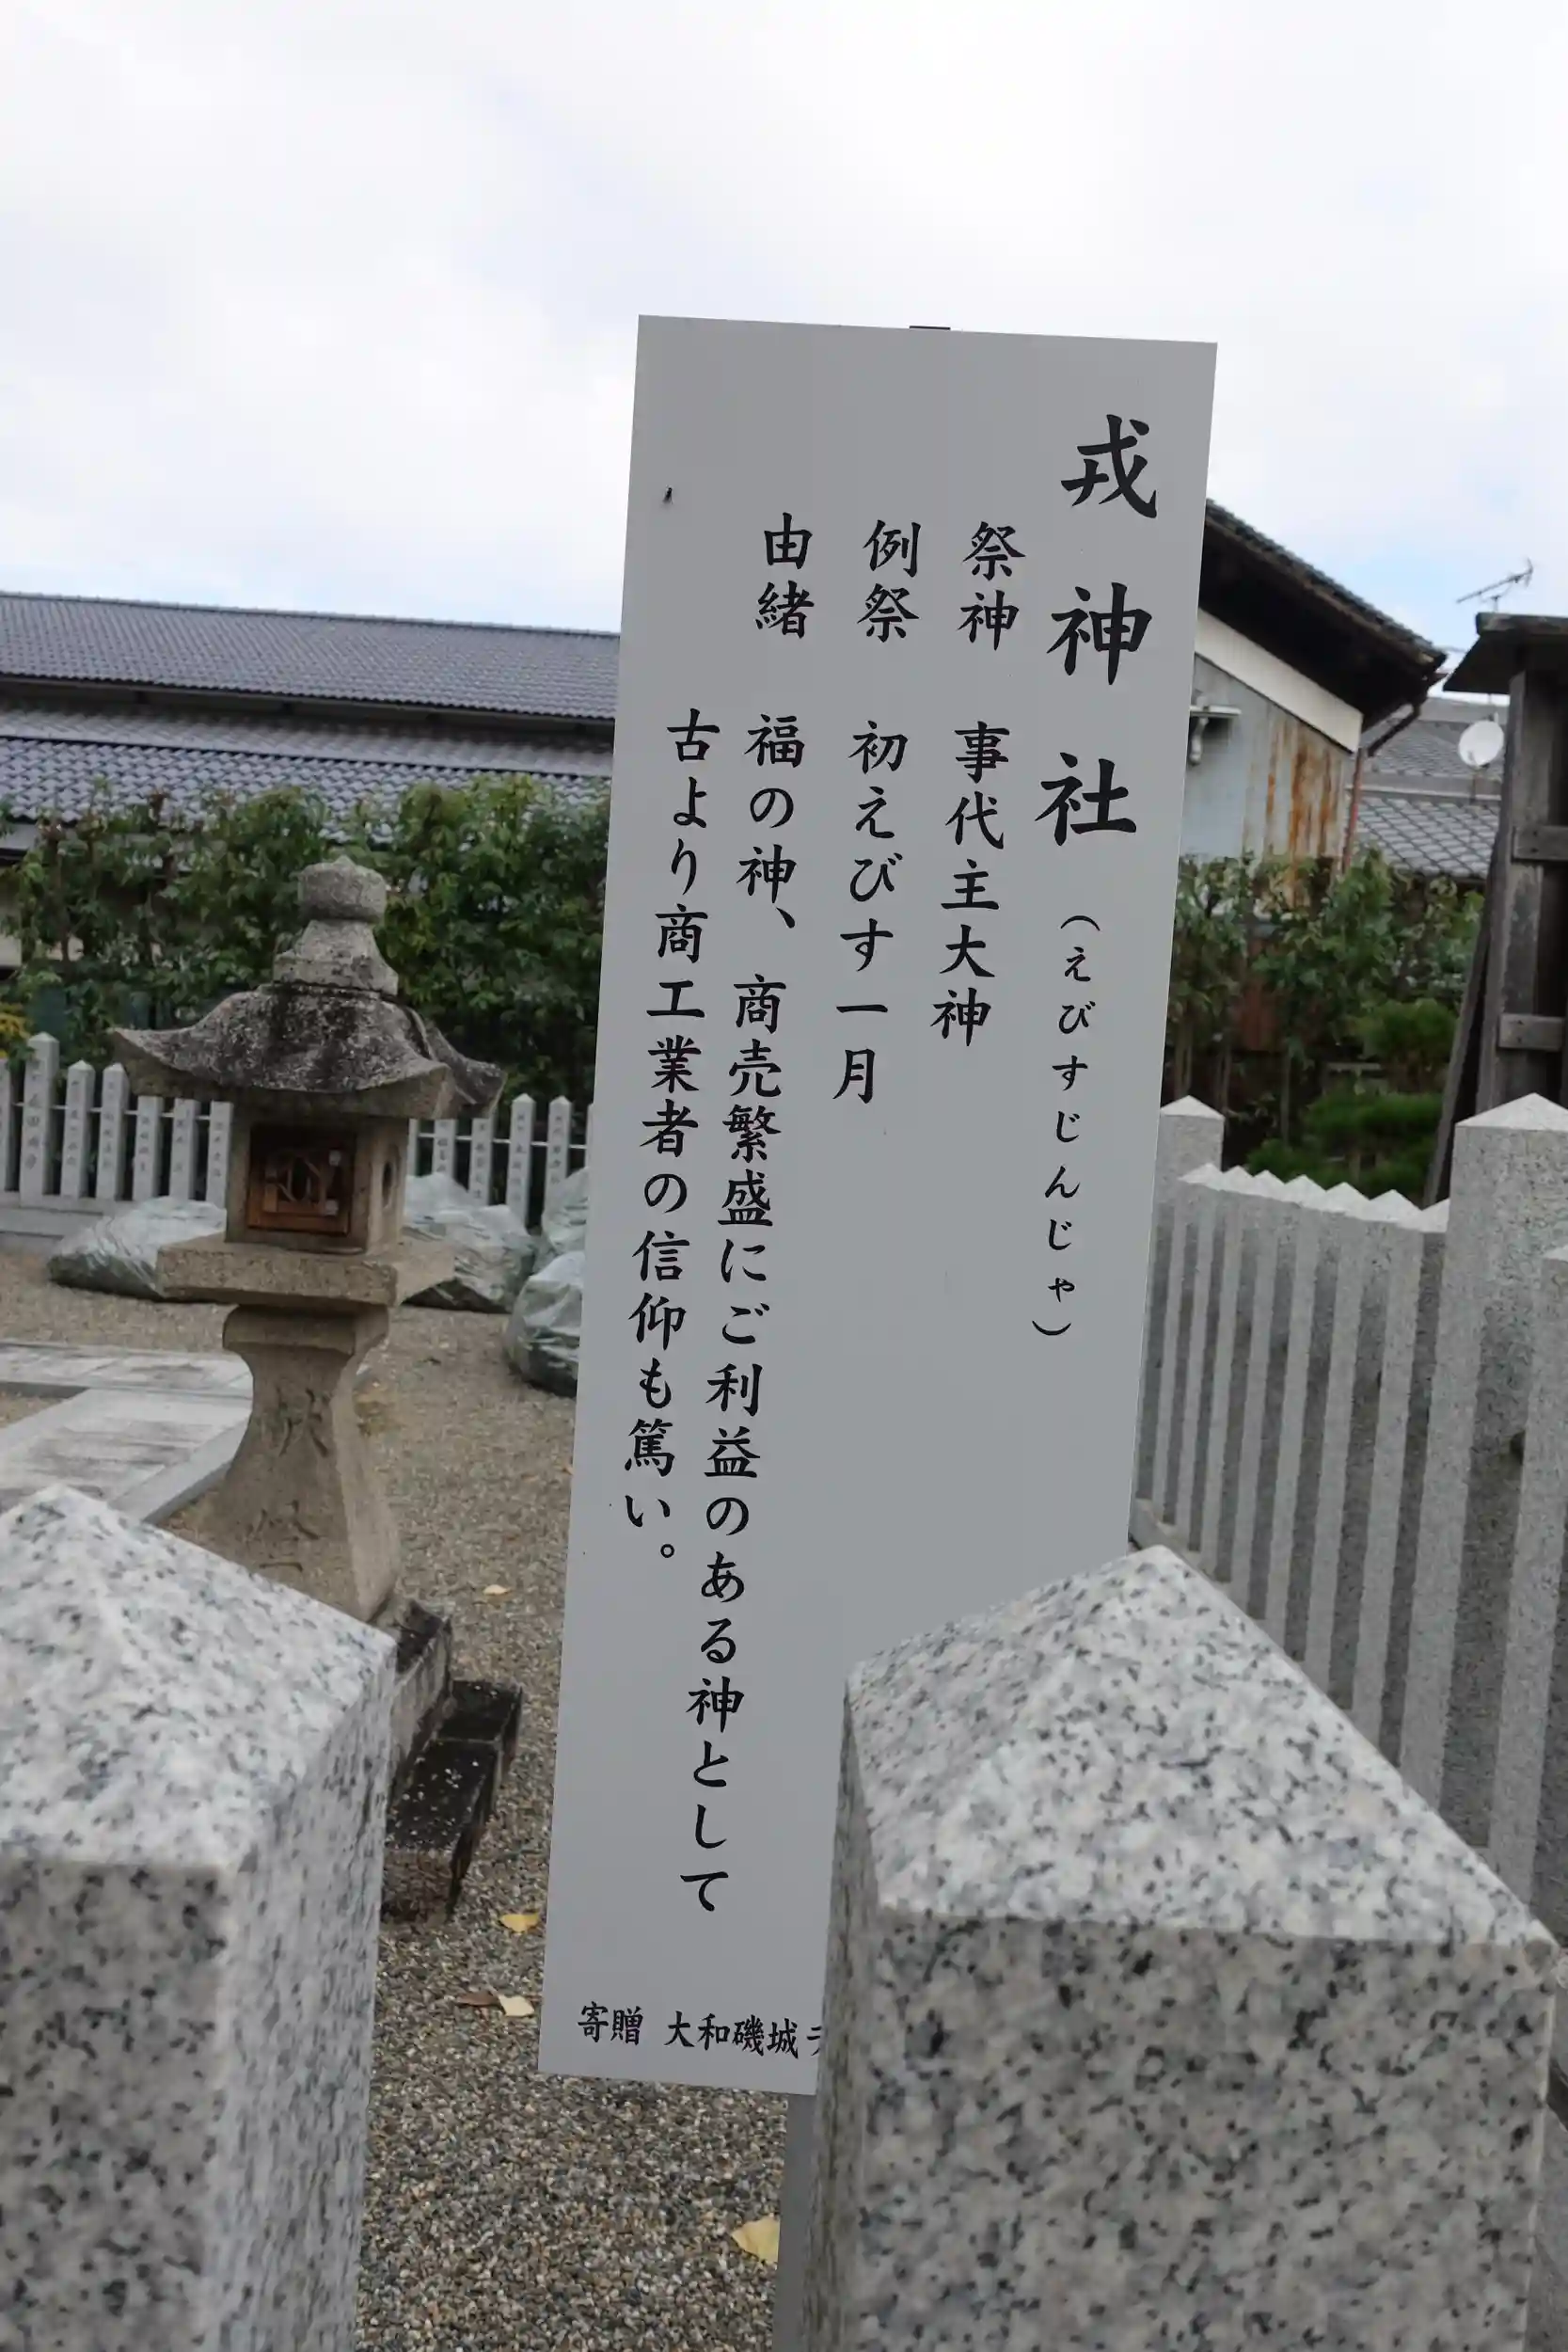 戎神社（えびすじんじゃ）
祭神 事代主大神
例祭 初えびす一月
由緒 福の神、商売繁盛にご利益のある神として
古より商工業者の信仰も篤い。
寄贈 大和磯城